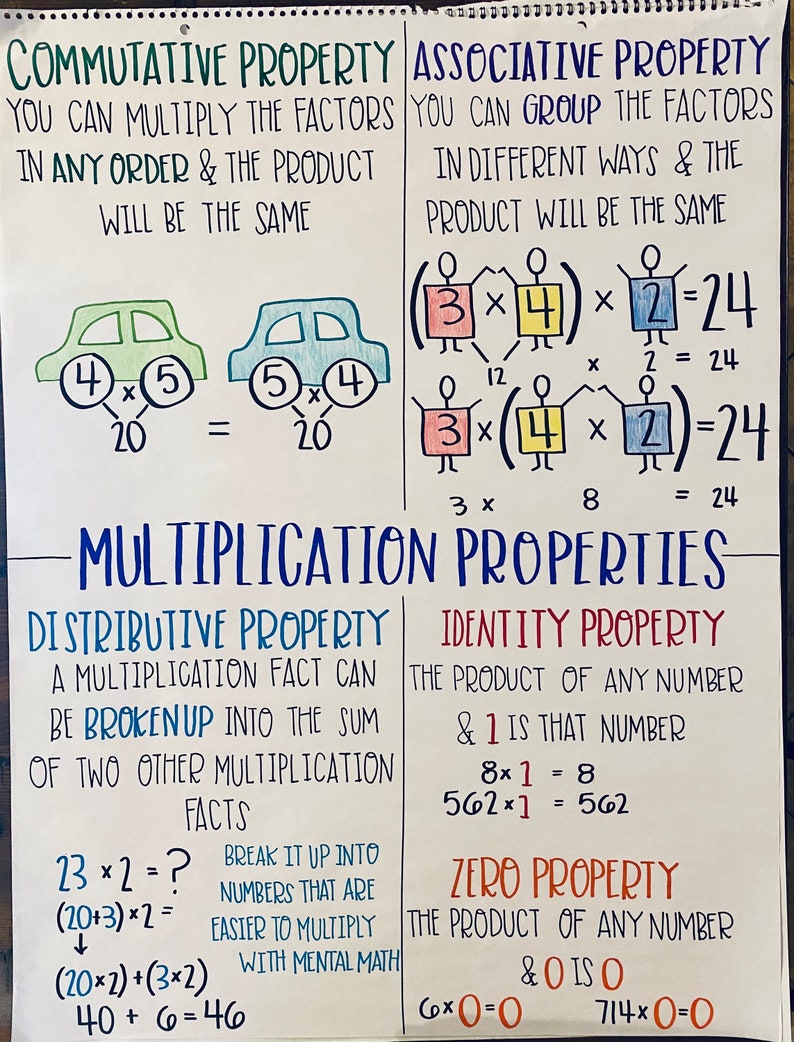 COMMUTATIVE PROPERTY
YOU CAN MULTIPLY THE FACTORS
IN ANY ORDER & THE PRODUCT
WILL BE THE SAME
4 x 5
20
=
5 x 4
20
ASSOCIATIVE PROPERTY
YOU CAN GROUP THE FACTORS
IN DIFFERENT WAYS & THE
PRODUCT WILL BE THE SAME
(3 x 4) x 2 = 24
12 x 2 = 24
3 x (4 x 2) = 24
3 x 8 = 24
MULTIPLICATION PROPERTIES
DISTRIBUTIVE PROPERTY
A MULTIPLICATION FACT CAN
BE BROKEN UP INTO THE SUM
OF TWO OTHER MULTIPLICATION
FACTS
23 x 2 = ?
(20+3) x 2 =
↓
(20x2) + (3x2)
40 + 6 = 46
BREAK IT UP INTO
NUMBERS THAT ARE
EASIER TO MULTIPLY
WITH MENTAL MATH
IDENTITY PROPERTY
THE PRODUCT OF ANY NUMBER
& 1 IS THAT NUMBER
8 x 1 = 8
562 x 1 = 562
ZERO PROPERTY
THE PRODUCT OF ANY NUMBER
& 0 IS 0
6 x 0 = 0 714 x 0 = 0